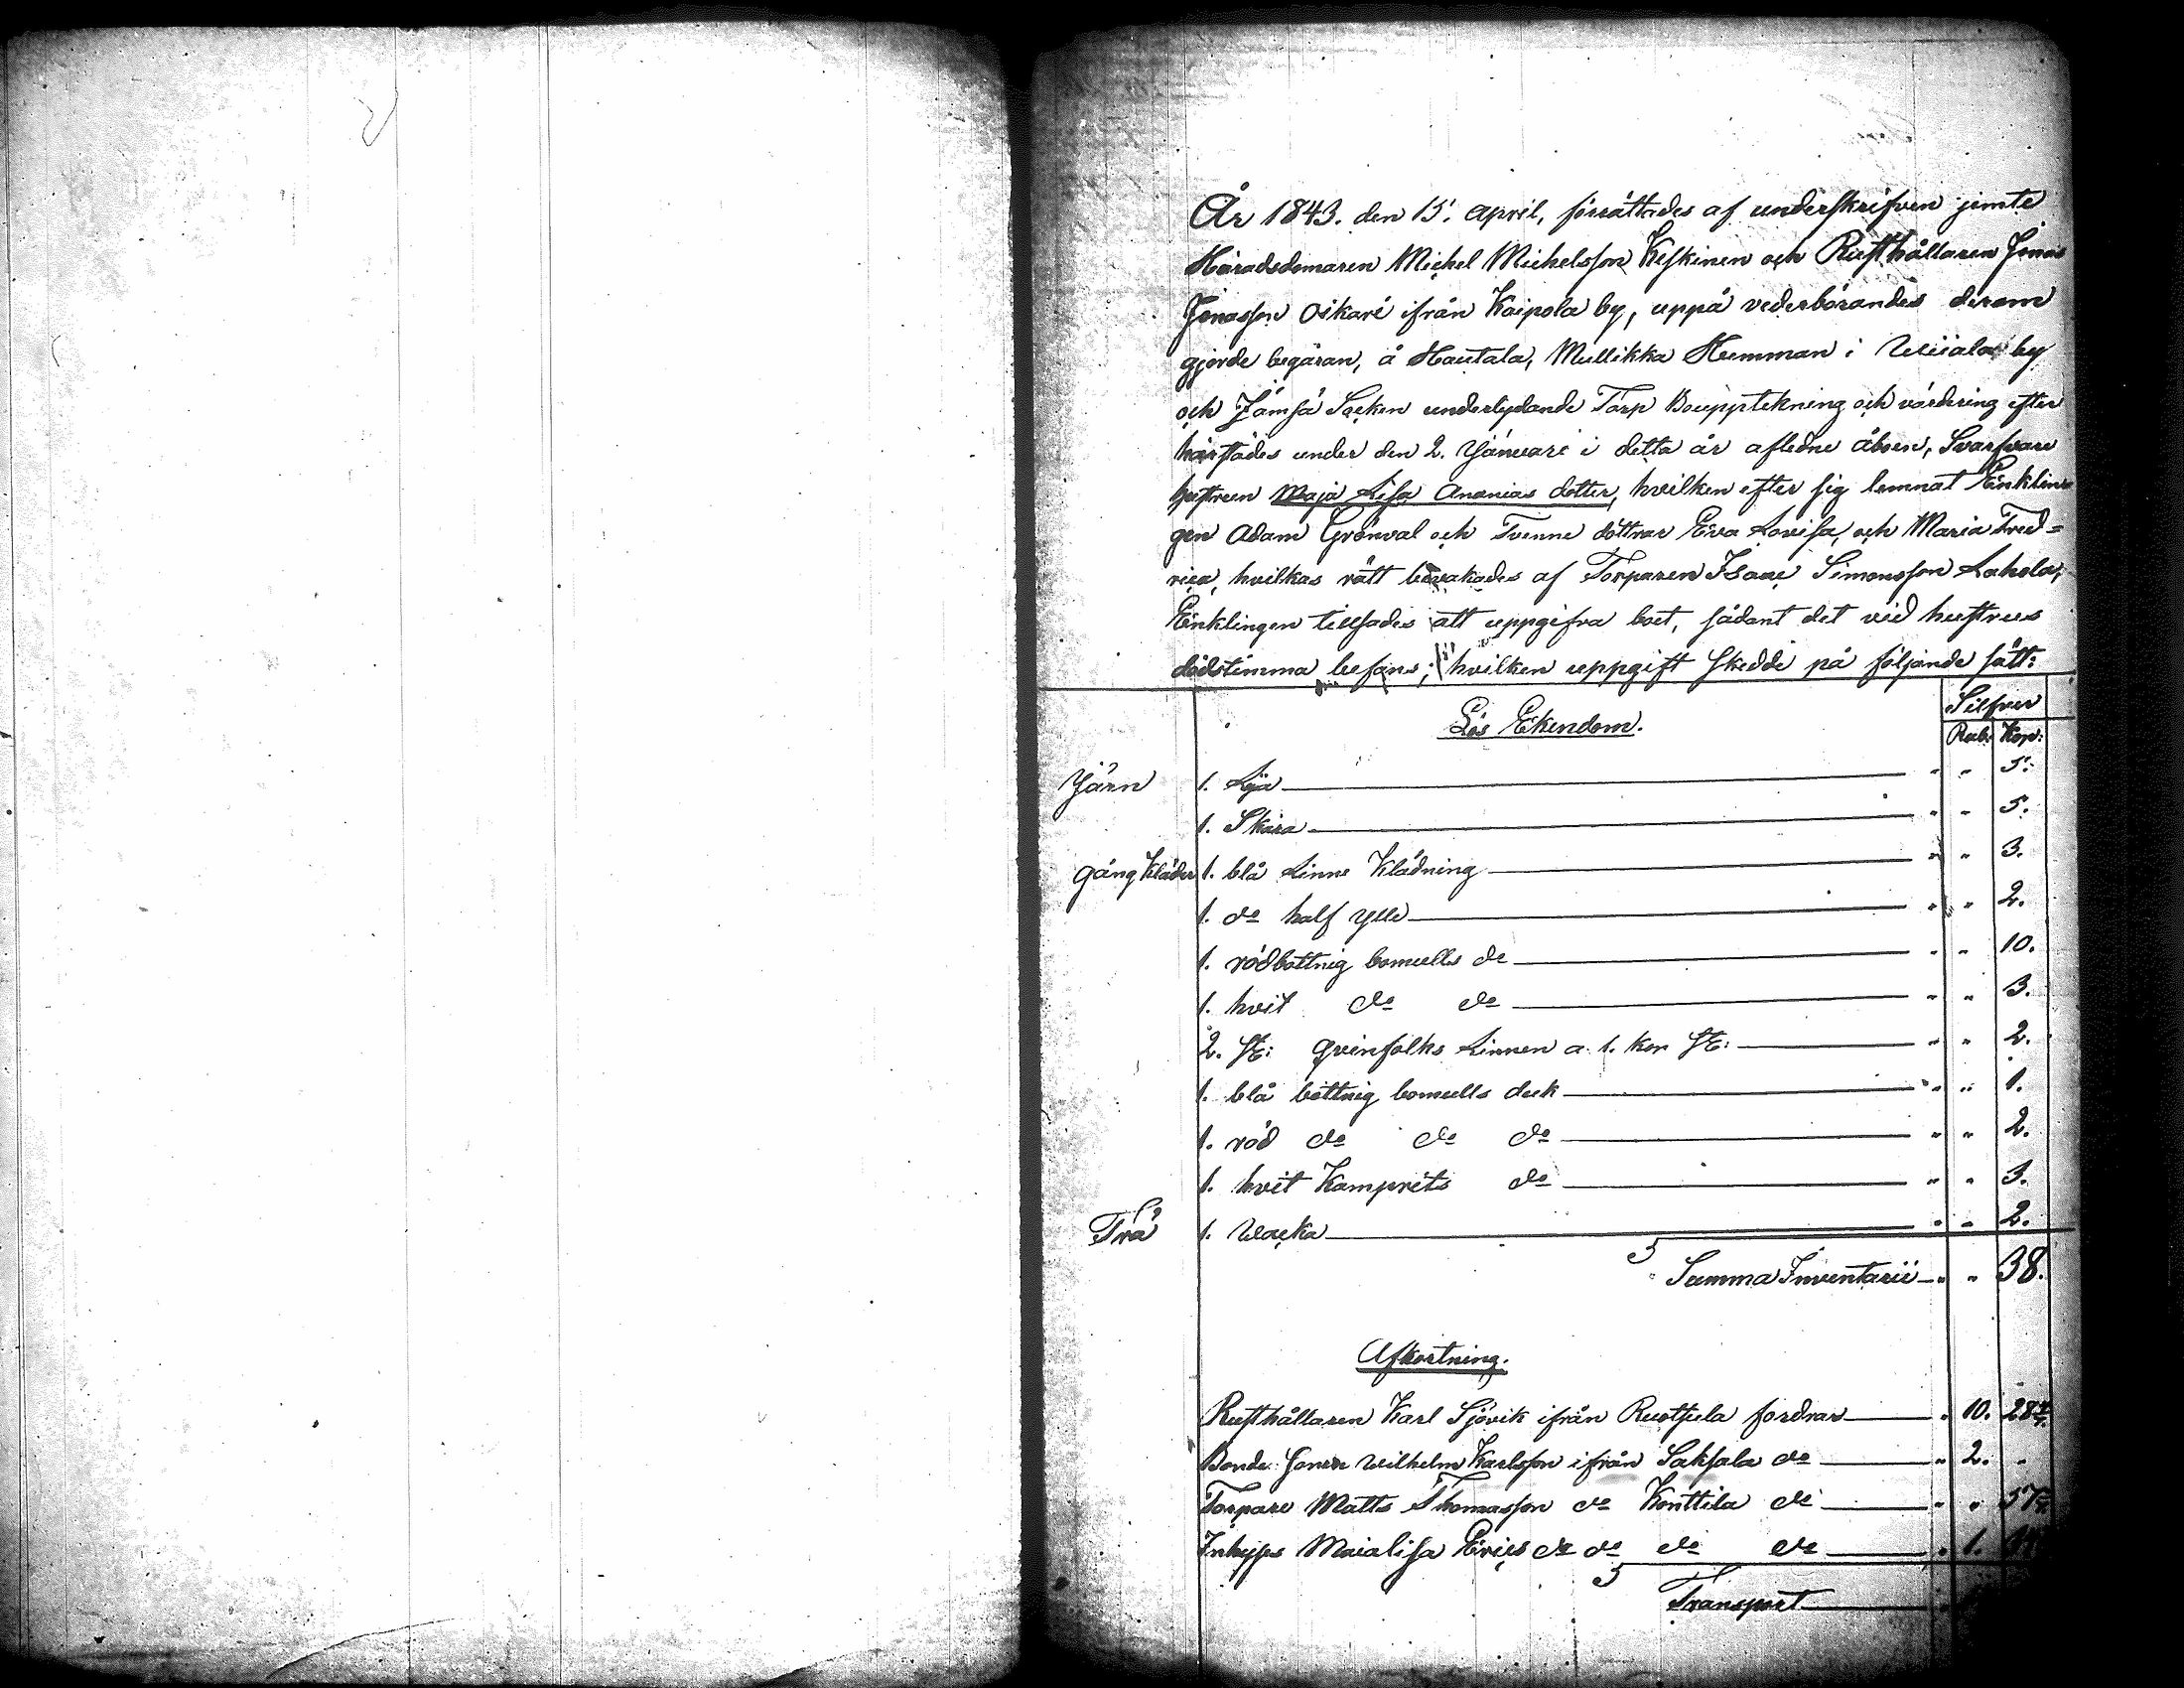 År 1843. den 15. April, förrättades af underskrifven jemte
Häradsdomaren Michel Michelsson Keskinen och Rusthållaren Jonas
Jonasson Oikari ifrån Kaipola by, uppå vederbörandes derom
gjorde begäran, å Hautala, Mullikka Hemman i by
och Jämsä Socken underlydande Torp Boupptekning och värdering efter
härstädes under den 2. Januari i detta år afledne åboen, Svarfvare
hustrun Maja Lisa Ananias dotter, hvilken efter sig lemnat Enklin=
gen Adam Grönval och Tvenne döttrar Eva Lovisa, och Maria Fred=
rica, hvilkas rätt bevakades af Torparen Isaac Simonsson Lahola,
Enklingen tillsades att uppgifva boet, sådant det vid hustrus
dödstimma befans; hvilken uppgift skedde på följande sätt:
Silfver
Lös Ekendom.
Rub: Kop:
Järn 1. Lija " " 5.
1. Skära " " 5.
Gång Kläder 1. blå Linne Klädning " " 3.
1. do half ylle " " 2.
1. rödbottnig bomulls do " " 10.
1. hvit do do " " 3.
2. St: Qvinfolks Linnen a 1. kop St: " " 2.
1. blå bottnig bomulls duk " " 1.
1. röd do do do " " 2.
1. hvit Kamprits do " " 3.
Trä 1. Wacka " " 2.
Summa Inventarii " " 38.
Afkortning.
Rusthållaren Karl Sjövik ifrån Ruotsula fordrar " 10. 28
Bonde Sonen Wilhelm Karlsson ifrån Saksala do " 2. "
Torpare Matts Thomasson do Konttila do " " 57
Inhyses Maialisa Erics do do do do " 1.
Transport